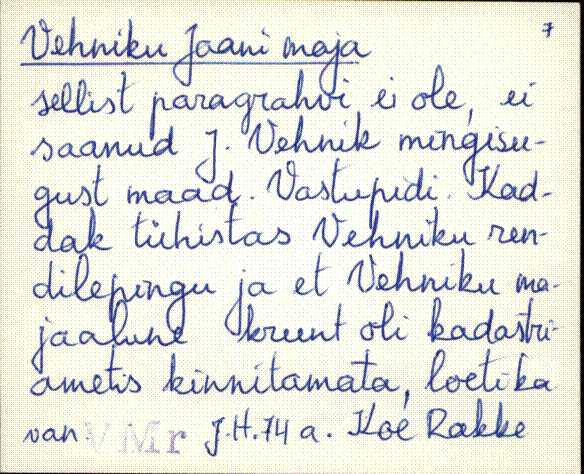 7
Vehniku Jaani maja
sellist paragrahvi ei ole, ei
saanud J. Vehnik mingisu-
gust maad. Vastupidi. Kad-
dak tühistas Vehniku ren-
dilepingu ja et Vehniku ma-
jaalune krunt oli kadastri-
ametis kinnitamata, loeti ka
van VMr J.H.74 a. Koe Rakke